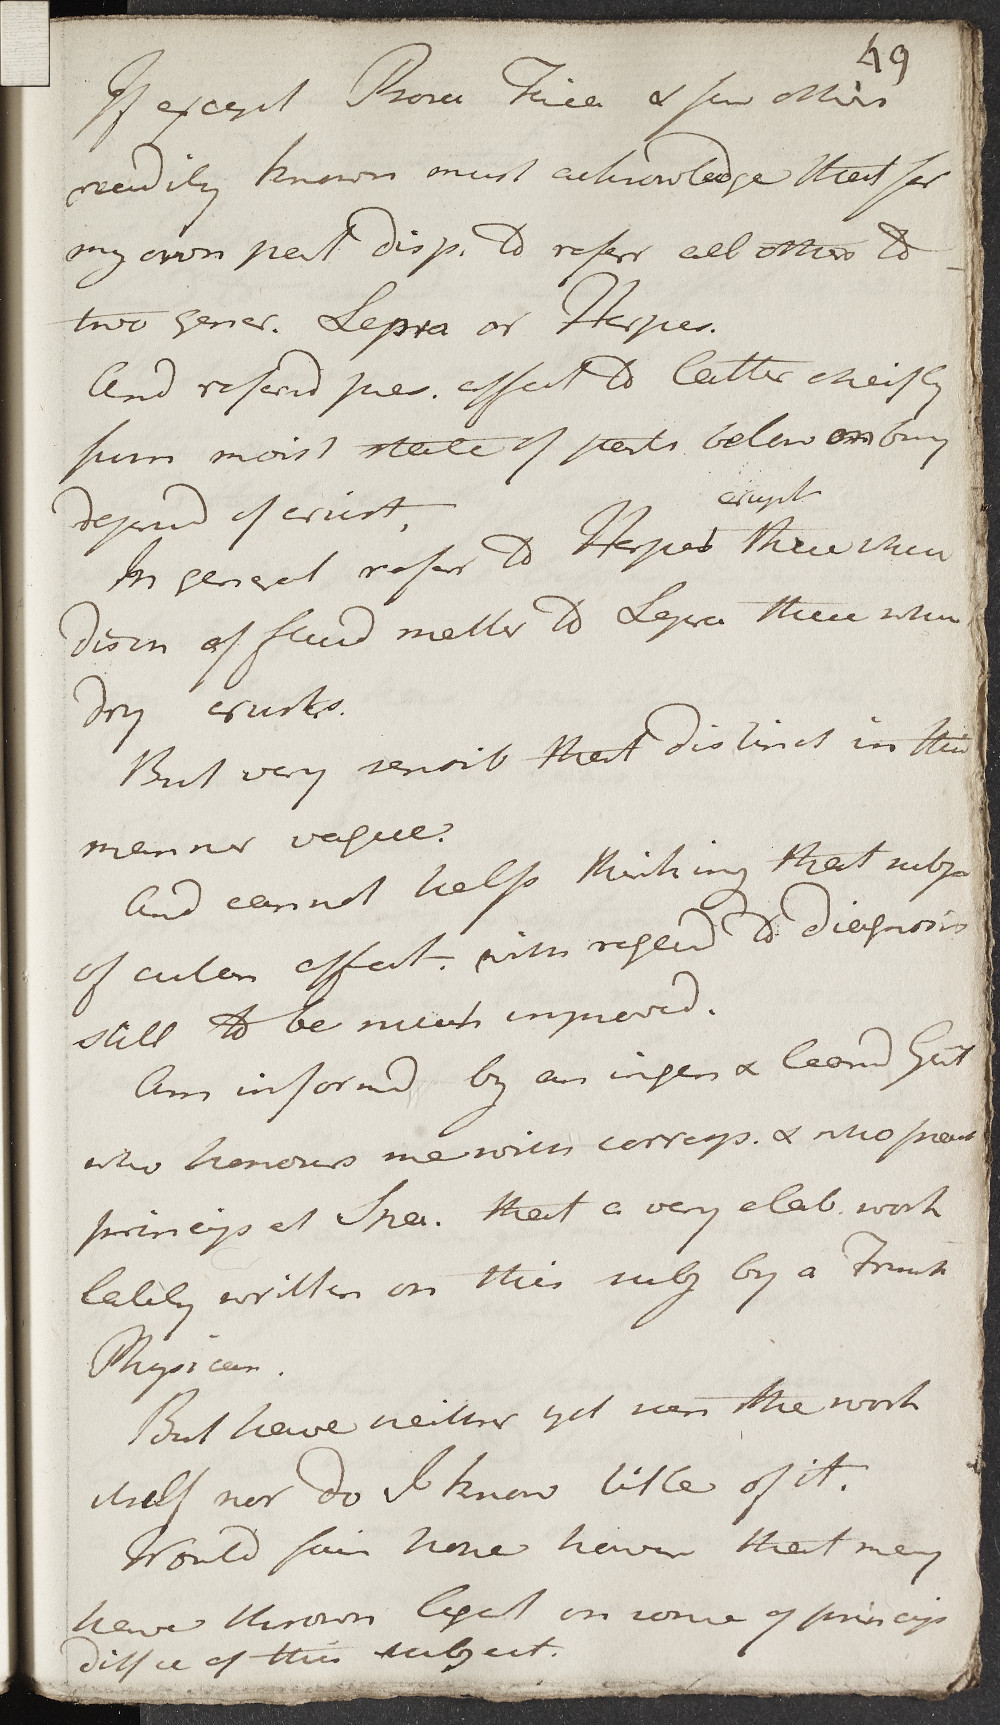 49
If except Psora Tinea & few others
readily known must acknowledge that for
my own part disp. to refer all others to
two gener. Lepra or Herpes.
And referd pres. affect to latter cheifly
from moist state of parts below on bury
depend of crust.
erupt
In general refer to Herpes these when
disch of fluid matter to Lepra these when
dry crusts.
But very sensib that distinct in this
manner vague.
And cannot help thinking that subj
of cutan affect. with regard to diagnosis
still to be much improved.
Am informd by an ingen & learnd Gent
who honours me with corresp. & who pract
princip at Spa. that a very elab. work
lately written on this subj by a French
Physician.
But have neither yet seen the work
itself nor do I know title of it.
Would fain hope howev that may
have thrown light on some of princip
diffic of this subject.